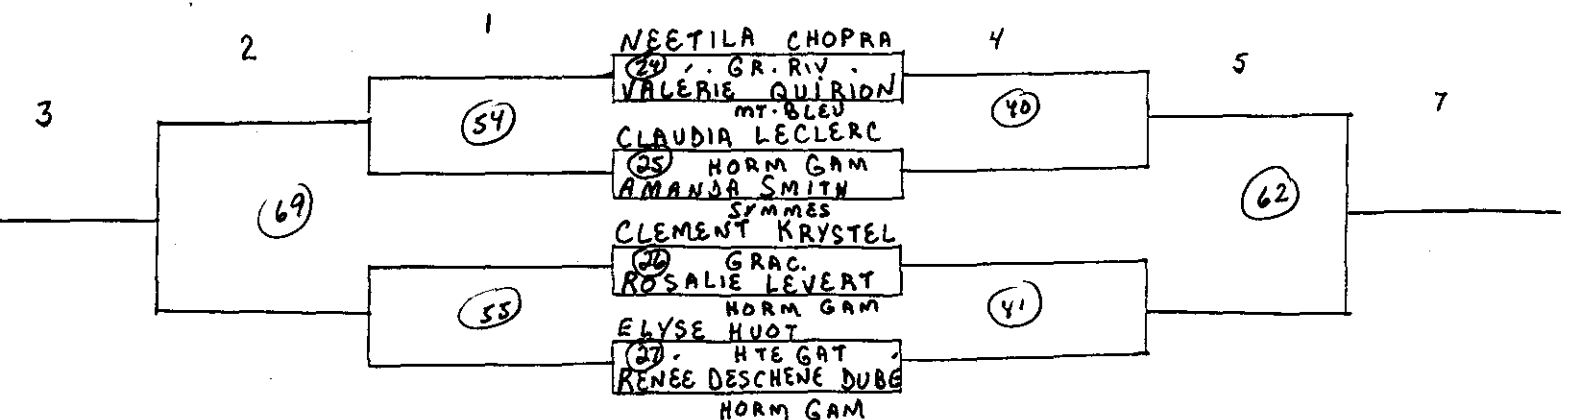 1
2
3
NEETILA CHOPRA
24 GR. RIV.
VALÉRIE QUIRION
MT. BLEU
54
CLAUDIA LECLERC
25 HORM GAM
AMANDA SMITH
SYMMES
69
CLEMENT KRYSTEL
26 GRAC.
ROSALIE LEVERT
HORM GAM
55
ELYSE HUOT
27. HTE GAT
RENEE DESCHENE DUBE
HORM GAM
4
5
7
40
62
41